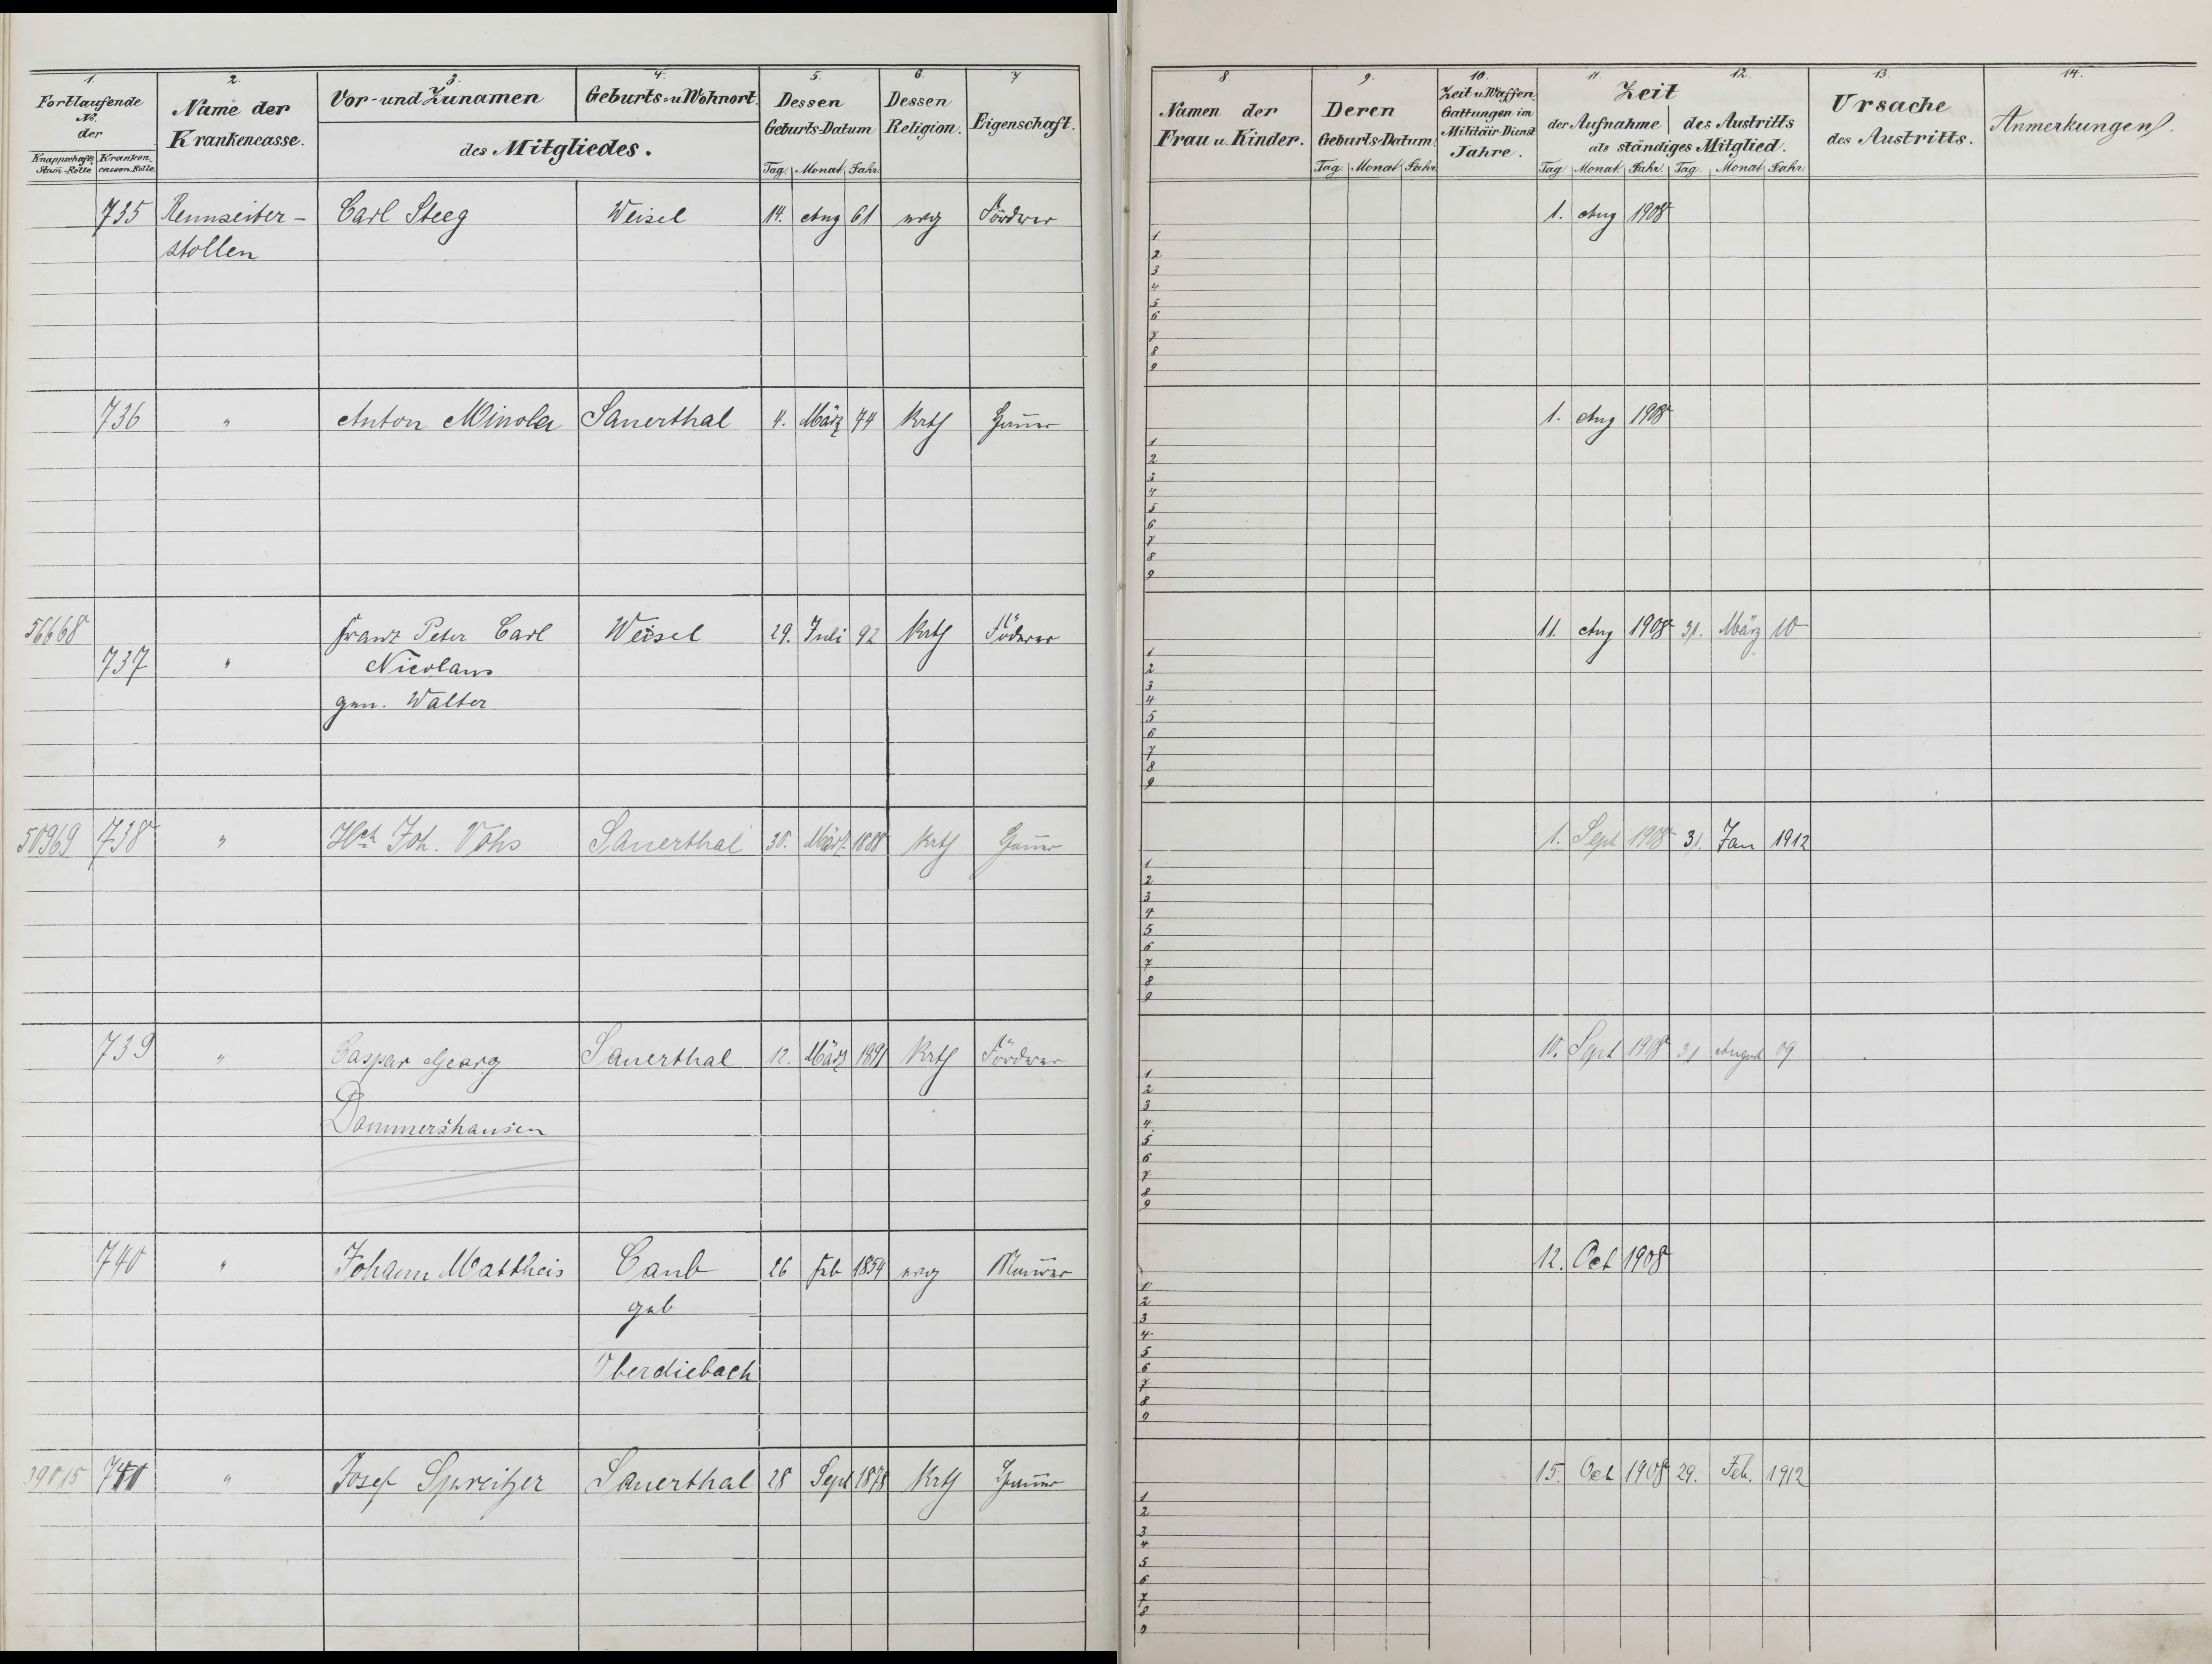 1. 2. 3. 4. 5. 6. 7
Fortlaufende No. der
Knappschafts Stam-Rolle
Kranken cassen-Rolle
Name der Krankencasse.
Vor- und Zunamen
Geburts- u Wohnort.
des Mitgliedes.
Dessen Geburts-Datum
Tag. Monat. Jahr.
Dessen Religion.
Eigenschaft.
735 Rennseiter- Carl Steeg Weisel 14. Aug 61 evg Förderer
stollen
736 " Anton Minola Sauerthal 4. März 74 Kath Hauer
56668 Franz Peter Carl Weisel 29. Juli 92 Kath Föderer
737 " Nicolaus
gen. Walter
50969 738 " Hch Joh. Vohs Sauerthal 30. März 1888 Kath Hauer
739 " Caspar Georg Sauerthal 12. März 1891 Kath Förderer
Dommershausen
740 " Johann Mattheis Caub 26 Feb 1854 evg Maurer
geb
Oberdiebach
741 " Josef Spreitzer Sauerthal 28 Sept 1878 Kath Hauer
8. 9. 10. 11. 12. 13. 14.
Namen der Frau u. Kinder.
Deren Geburts-Datum.
Tag. Monat Jahr.
Zeit u Waffen Gattungen im Militär-Dienst Jahre.
Zeit
der Aufnahme des Austritts
als ständiges Mitglied.
Tag. Monat. Jahr. Tag. Monat Jahr.
Ursache des Austritts.
Anmerkungen.
1. Aug 1908
1
2
3
4
5
6
7
8
9
1. Aug 1908
1
2
3
4
5
6
7
8
9
11. Aug 1908 31. März 10
1
2
3
4
5
6
7
8
9
1. Sept 1908 31. Jan 1912
1
2
3
4
5
6
7
8
9
10. Sept 1908 31 August 09
1
2
3
4
5
6
7
8
9
12. Oct 1908
1
2
3
4
5
6
7
8
9
15. Oct 1908 29. Feb. 1912
1
2
3
4
5
6
7
8
9